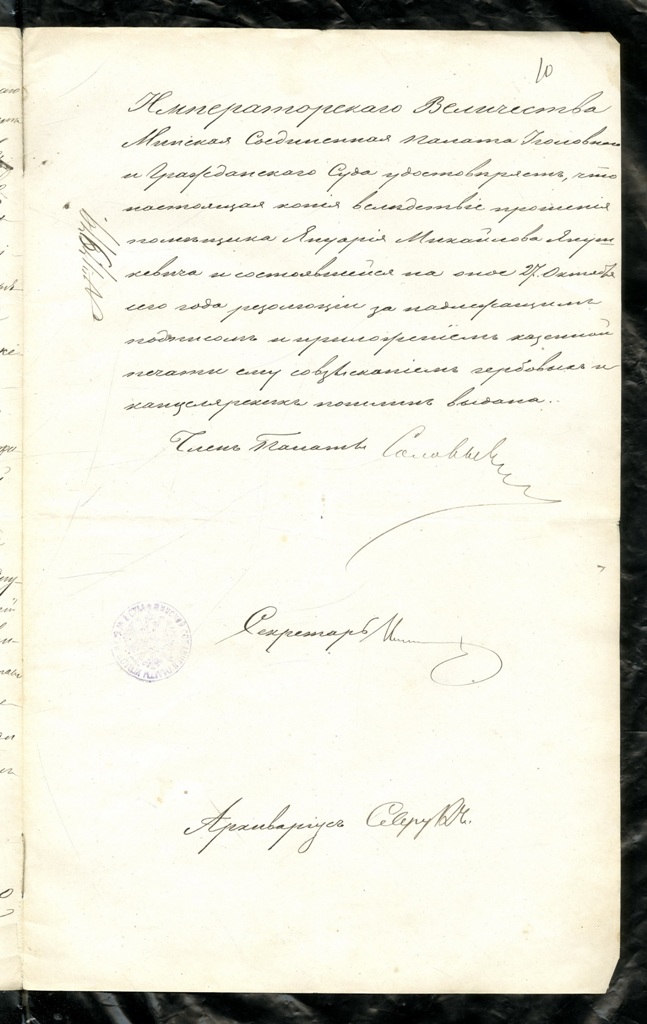 10
Императорскаго Величества
Минская Соединенная Палата Уголовнаго
и Гражданскаго Суда удостовѣряетъ, что
настоящая копія вслѣдствіе прошенія
помѣщика Януарія Михайлова Януш-
кевича и состоявшейся на оное 27 Октября
сего года резолюціи за надлежащимъ
подписомъ и приложеніемъ казенной
печати ему со взысканіемъ гербовыхъ и
канцелярскихъ пошлинъ выдана.
Членъ Палаты Соловьев
Секретарь
Архиваріусъ